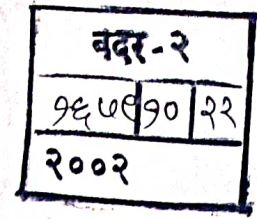 बदर-२
१६५९ १० २२
२००२